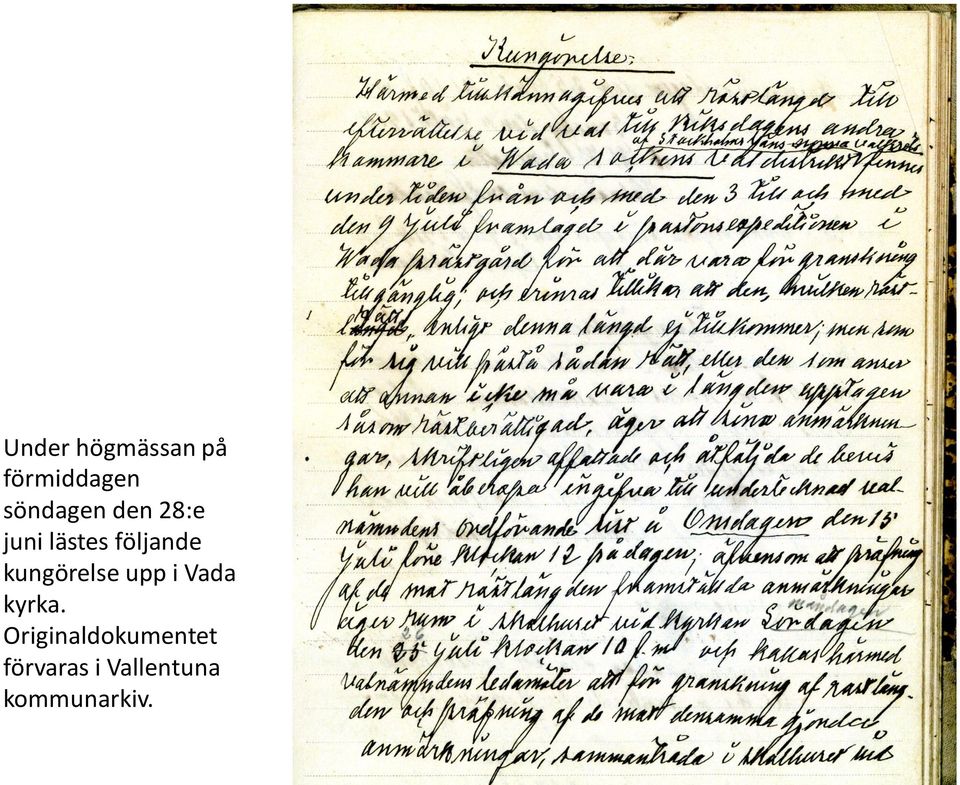 Under högmässan på
förmiddagen
söndagen den 28:e
juni lästes följande
kungörelse upp i Vada
kyrka.
Originaldokumentet
förvaras i Vallentuna
kommunarkiv.
Kungörelse:
Härmed tillkännagifves att röstlängd till
efterrättelse vid val till Riksdagens andra
af Stockholms läns norra valkrets
kammare i Wada sockens valdistrikt finnes
under tiden från och med den 3 till och med
den 9 Juli framlagd i pastorsexpeditionen i
Wada prästgård för att där vara för granskning
tillgänglig; och erinras tillika att den, hvilken röst-
rätt
längd, enligt denna längd ej tillkommer; men som
för sig vill påstå sådan rätt, eller den som anser
att annan icke må vara i längden upptagen
såsom röstberättigad, äger att sina anmärknin-
gar, skriftligen affattade och åtföljda de bevis
han vill åberopa ingifva till undertecknad val-
nämndens ordförande sist å Onsdagen den 15
Juli före klockan 12 på dagen; äfvensom att pröfning
af de mot röstlängden framställda anmärkningar
måndagen
äger rum i skolhuset vid kyrkan Söndagen
26
den 25 Juli klockan 10 f.m. och kallas härmed
valnämndens ledamöter att för granskning af röstläng-
den och pröfning af de mot densamma gjorda
anmärkningar, sammanträda i skolhuset vid